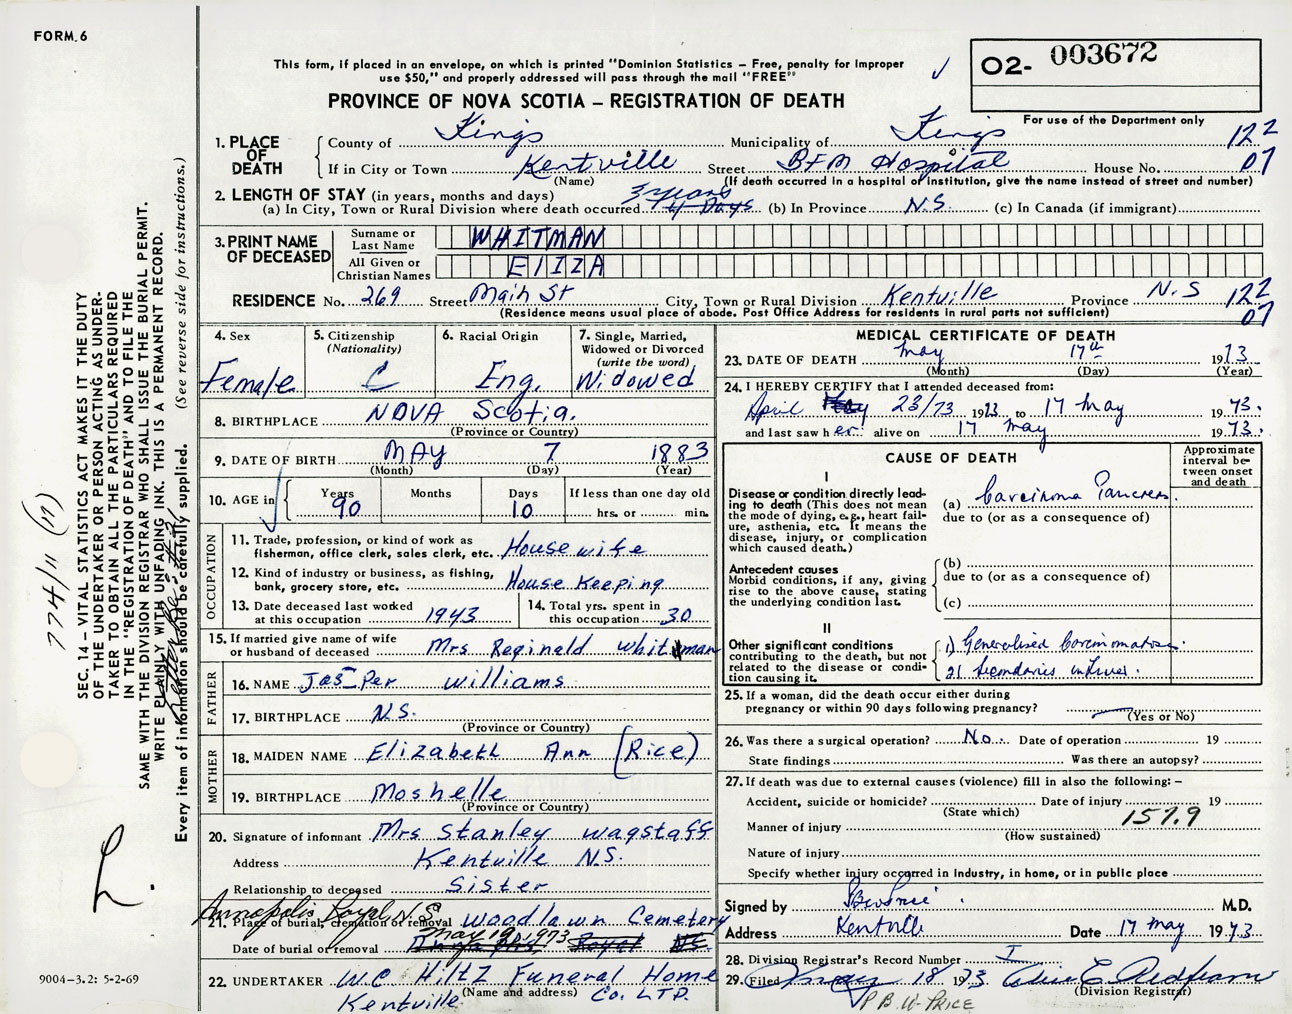 FORM.6
This form, if placed in an envelope, on which is printed "Dominion Statistics – Free, penalty for improper
use $50," and properly addressed will pass through the mail "FREE"
O2- 003672
PROVINCE OF NOVA SCOTIA – REGISTRATION OF DEATH
For use of the Department only
1. PLACE OF DEATH
County of Kings Municipality of Kings 122
If in City or Town Kentville Street BFM Hospital House No. 07
(Name) (If death occurred in a hospital or institution, give the name instead of street and number)
2. LENGTH OF STAY (in years, months and days) 3 years
(a) In City, Town or Rural Division where death occurred 4 Days (b) In Province N.S. (c) In Canada (if immigrant)
3. PRINT NAME OF DECEASED
Surname or Last Name WHITMAN
All Given or Christian Names ELIZA
RESIDENCE No. 269 Street Main St City, Town or Rural Division Kentville Province N.S 122
(Residence means usual place of abode. Post Office Address for residents in rural parts not sufficient) 07
4. Sex Female
5. Citizenship (Nationality) C
6. Racial Origin Eng.
7. Single, Married, Widowed or Divorced (write the word) Widowed
8. BIRTHPLACE NOVA Scotia.
(Province or Country)
9. DATE OF BIRTH MAY 7 1883
(Month) (Day) (Year)
10. AGE in Years 90 Months Days 10 If less than one day old hrs. or min.
OCCUPATION
11. Trade, profession, or kind of work as fisherman, office clerk, sales clerk, etc. Housewife
12. Kind of industry or business, as fishing, bank, grocery store, etc. House Keeping
13. Date deceased last worked at this occupation 1943
14. Total yrs. spent in this occupation 30
15. If married give name of wife or husband of deceased Mrs Reginald Whitman
FATHER
16. NAME Jasper Williams
17. BIRTHPLACE N.S.
(Province or Country)
MOTHER
18. MAIDEN NAME Elizabeth Ann (Rice)
19. BIRTHPLACE Moshelle
(Province or Country)
20. Signature of informant Mrs Stanley Wagstaff
Address Kentville N.S.
Relationship to deceased Sister
Annapolis Royal, N.S
21. Place of burial, cremation or removal Woodlawn Cemetery
May 19, 1973
Date of burial or removal Royal NS
22. UNDERTAKER W.C Hiltz Funeral Home
(Name and address) Co. LTD.
Kentville
MEDICAL CERTIFICATE OF DEATH
23. DATE OF DEATH May 17th 1973
(Month) (Day) (Year)
24. I HEREBY CERTIFY that I attended deceased from:
April 23/73 1973 to 17 May 1973.
and last saw her alive on 17 May 1973.
CAUSE OF DEATH
Approximate interval between onset and death
I
Disease or condition directly leading to death (This does not mean the mode of dying, e.g., heart failure, asthenia, etc. It means the disease, injury, or complication which caused death.)
(a) Carcinoma Pancreas.
due to (or as a consequence of)
Antecedent causes
Morbid conditions, if any, giving rise to the above cause, stating the underlying condition last.
(b)
due to (or as a consequence of)
(c)
II
Other significant conditions
contributing to the death, but not related to the disease or condition causing it.
1) Generalised Carcinomatosis.
2) Secondaries in Liver.
25. If a woman, did the death occur either during pregnancy or within 90 days following pregnancy?
(Yes or No)
26. Was there a surgical operation? No. Date of operation 19
State findings Was there an autopsy?
27. If death was due to external causes (violence) fill in also the following: –
Accident, suicide or homicide? Date of injury 19
(State which) 157.9
Manner of injury
(How sustained)
Nature of injury
Specify whether injury occurred in Industry, in home, or in public place
Signed by M.D.
Address Kentville Date 17 May 1973.
28. Division Registrar's Record Number
29. Filed May 18 1973
(Division Registrar)
P B. W. PRICE
SEC. 14 – VITAL STATISTICS ACT MAKES IT THE DUTY
OF THE UNDERTAKER OR PERSON ACTING AS UNDER-
TAKER TO OBTAIN ALL THE PARTICULARS REQUIRED
IN THE "REGISTRATION OF DEATH" AND TO FILE THE
SAME WITH THE DIVISION REGISTRAR WHO SHALL ISSUE THE BURIAL PERMIT.
WRITE PLAINLY WITH UNFADING INK. THIS IS A PERMANENT RECORD.
Every item of information should be carefully supplied. (See reverse side for instructions.)
774/11 (11)
L.
9004–3.2: 5-2-69